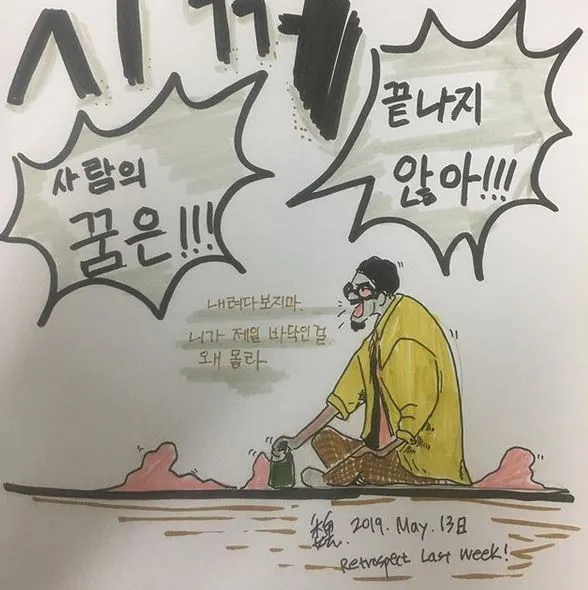 사람의
꿈은!!!
끝나지
않아!!!
내려다보지마.
니가 제일 바닥인걸
왜 몰라.
2019. May. 13日
Retrospect Last Week!